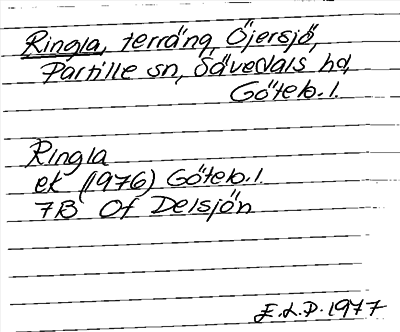 Ringla, terräng, Öjersjö,
Partille sn, Sävedals hd,
Göteb. l.
Ringla
ek (1976) Göteb. l.
7B Of Delsjön
E.L.P. 1977